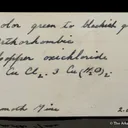 color green to blackish g
orthorhombic
Copper oxichloride
Cu Cl2. 3 Cu(H2O)2
Mine